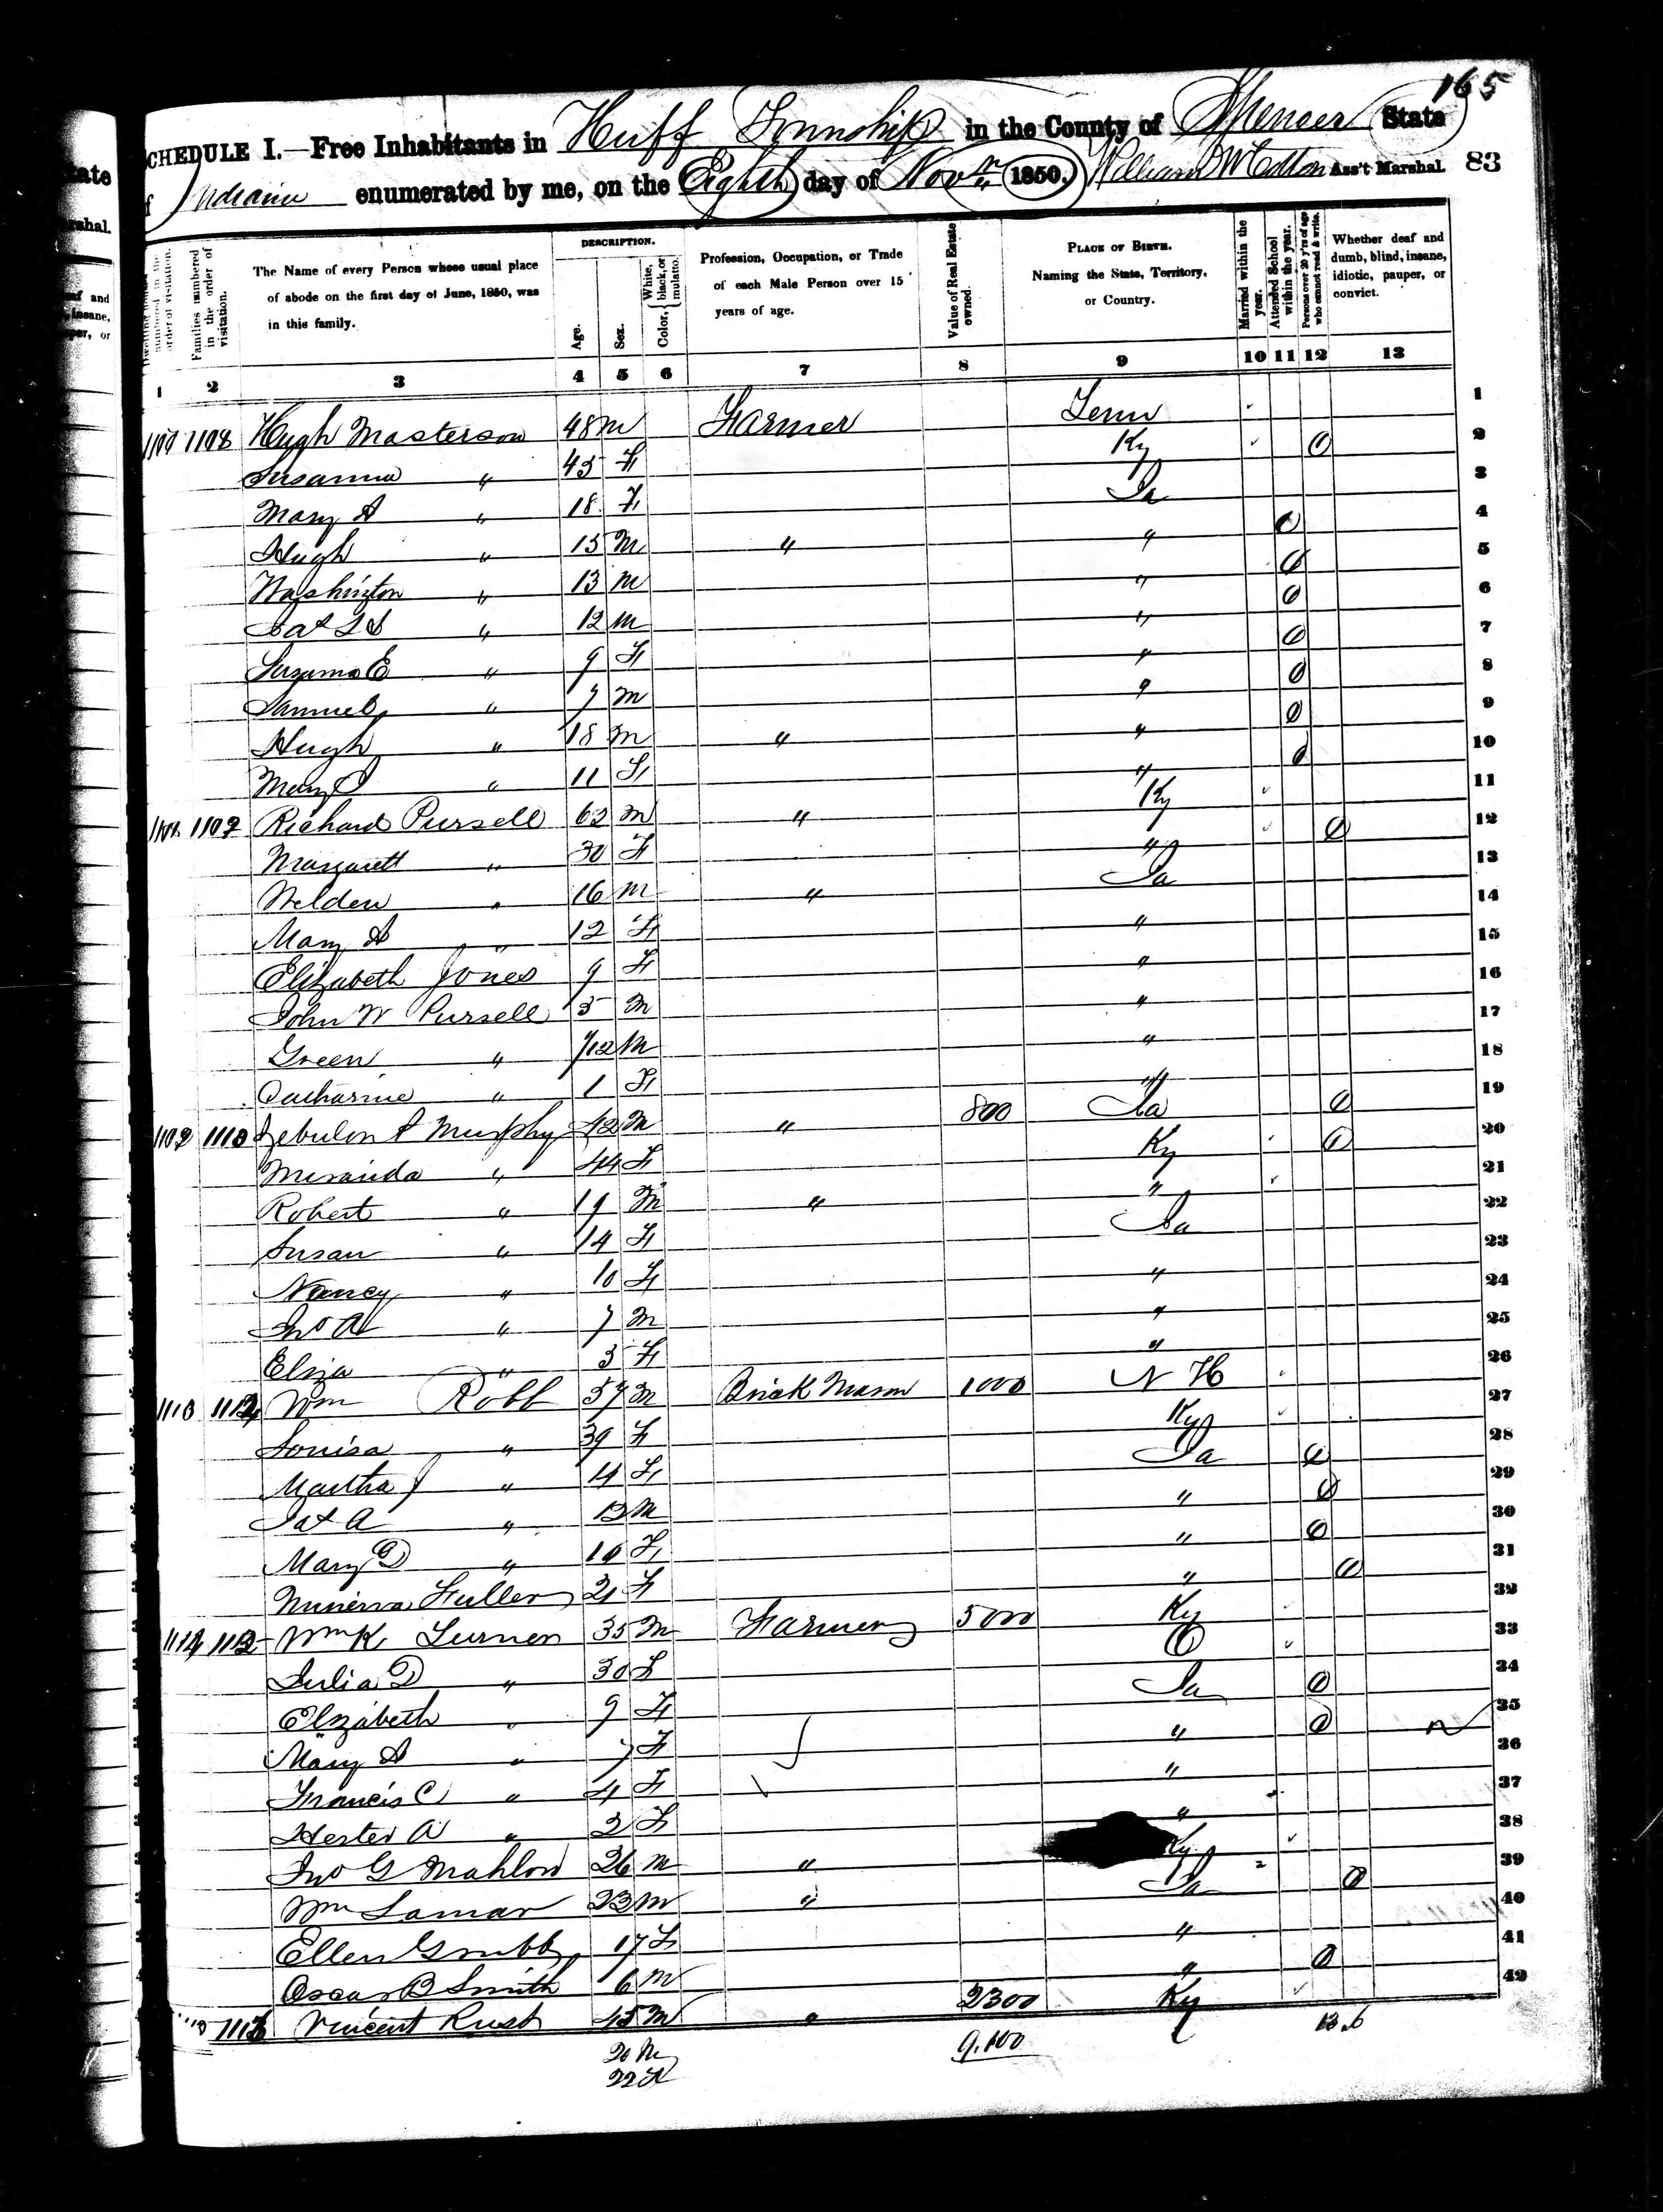 165
SCHEDULE I.—Free Inhabitants in Huff Township in the County of Spencer State
of Indiana enumerated by me, on the Eighth day of Novr 1850. William W Cotton Ass't Marshal. 83
Dwelling houses numbered in the order of visitation.
Families numbered in the order of visitation.
The Name of every Person whose usual place of abode on the first day of June, 1850, was in this family.
DESCRIPTION.
Age.
Sex.
Color, White, black, or mulatto.
Profession, Occupation, or Trade of each Male Person over 15 years of age.
Value of Real Estate owned.
PLACE OF BIRTH. Naming the State, Territory, or Country.
Married within the year.
Attended School within the year.
Persons over 20 y'rs of age who cannot read & write.
Whether deaf and dumb, blind, insane, idiotic, pauper, or convict.
1 2 3 4 5 6 7 8 9 10 11 12 13
1108 Hugh Masterson 48 M Farmer Tenn 1
Susanna " 45 F Ky 2
Mary A " 18 F Ia 3
Hugh " 15 M " " 4
Washington " 13 M " 5
Jas L S " 12 M " 6
Susanna E " 9 F " 7
Samuel " 7 M " 8
Hugh " 18 M " " 9
Mary J " 11 F " 10
1109 Richard Pursell 62 M " Ky 11
Margarett " 30 F " 12
Welden " 16 M " Ia 13
Mary A " 12 F " 14
Elizabeth Jones 9 F " 15
John W Pursell 5 M " 16
Green " 7/12 M " 17
Catharine " 1 F " 18
1109 1110 Zebulon P Murphy 42 M " 800 Ia 19
Meranda " 44 F Ky 20
Robert " 19 M " " 21
Susan " 14 F Ia 22
Nancy " 10 F " 23
Jno A " 7 M " 24
Eliza " 5 F " 25
1110 Wm Robb 57 M Brick Mason 1000 N H 26
Louisa " 39 F Ky 27
Martha J " 14 F Ia 28
Jas A " 12 M " 29
Mary D " 10 F " 30
Minerva Fuller 21 F " 31
1112 Wm K Turner 35 M Farmer 5000 Ky 32
Julia D " 30 F O 33
Elizabeth " 9 F Ia 34
Mary A " 7 F " 35
Francis C " 4 F " 36
Hester A " 2 F " 37
Jno G Mahlon 26 M " Ky 38
Wm Lamar 23 M " Ia 39
Ellen Grubb 17 F " 40
Oscar B Smith 6 M " 41
1113 Vincent Rust 45 M " 2300 Ky 42
20 M 9,100
22 F